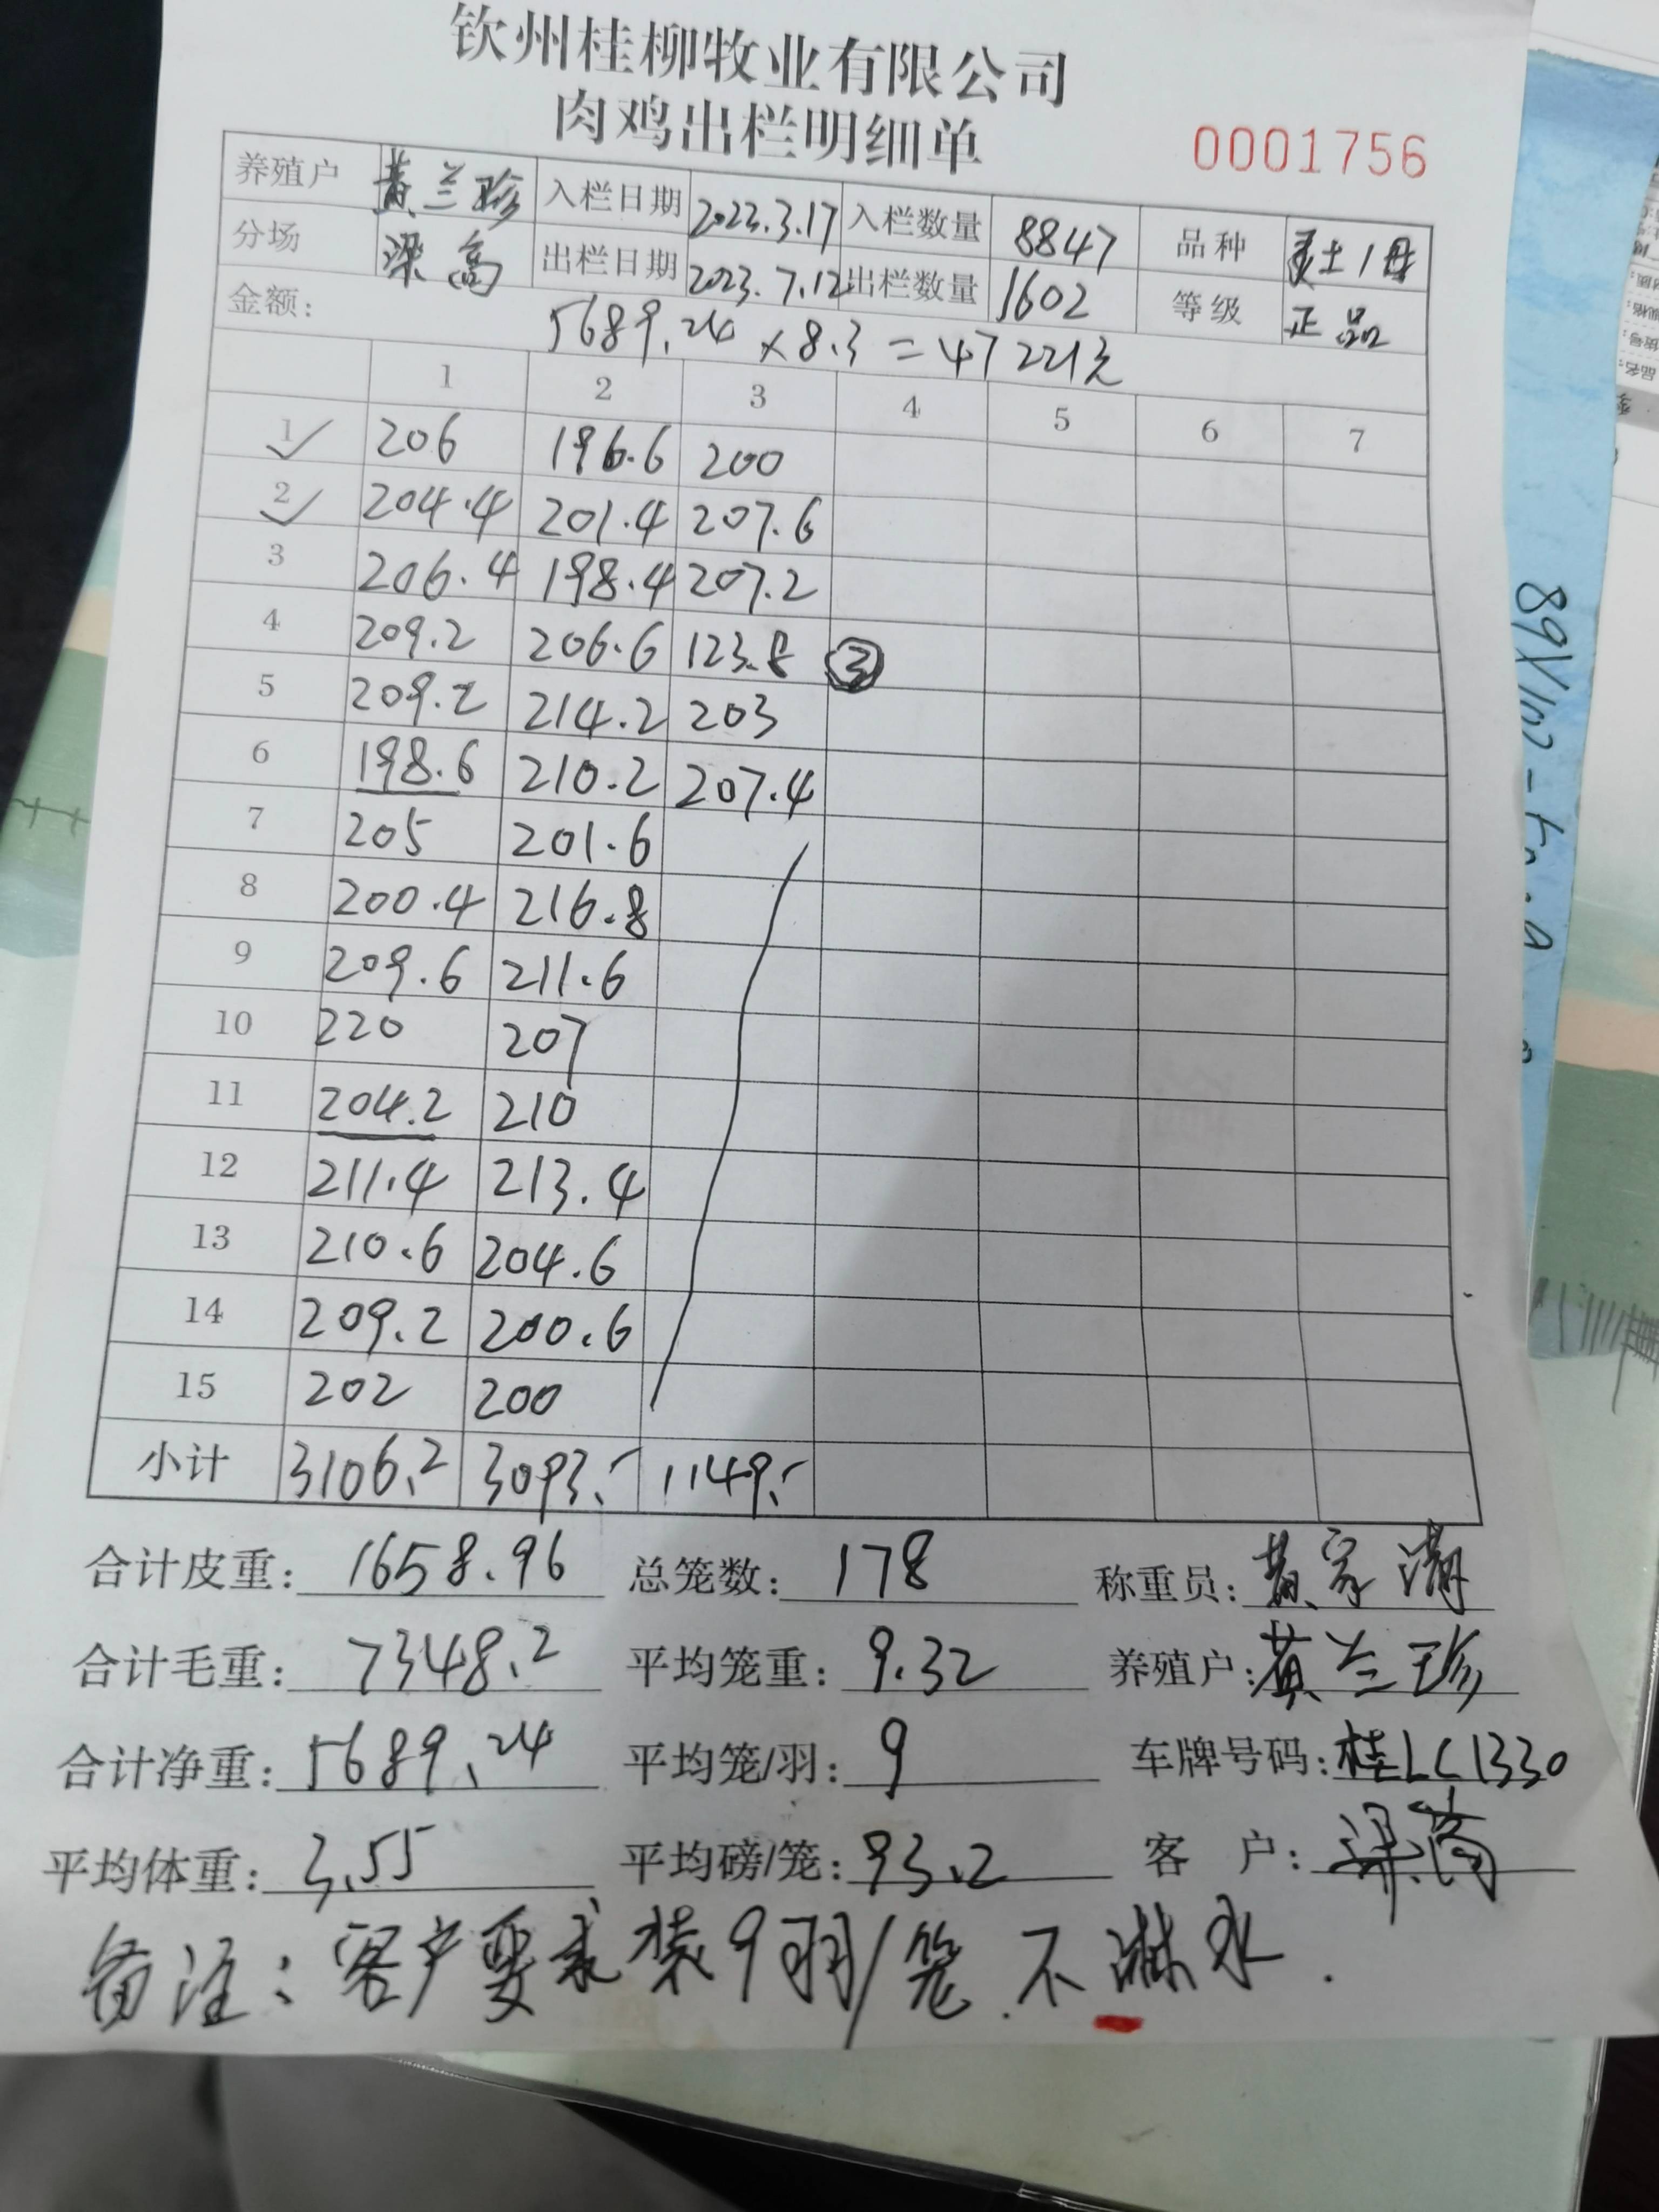 钦州桂柳牧业有限公司
肉鸡出栏明细单
0001756
养殖户 黄兰珍 入栏日期 2023.3.17 入栏数量 8847 品种 灵土1母
分场 梁高 出栏日期 2023.7.12 出栏数量 1602 等级 正品
金额: 5689.24 × 8.3 = 47221元
1 2 3 4 5 6 7
1 206 196.6 200
2 204.4 201.4 207.6
3 206.4 198.4 207.2
4 209.2 206.6 123.8 ③
5 209.2 214.2 203
6 198.6 210.2 207.4
7 205 201.6
8 200.4 216.8
9 209.6 211.6
10 220 207
11 204.2 210
12 211.4 213.4
13 210.6 204.6
14 209.2 200.6
15 202 200
小计 3106.2 3093.- 1149.-
合计皮重: 1658.96 总笼数: 178 称重员: 黄家满
合计毛重: 7348.2 平均笼重: 9.32 养殖户: 黄兰珍
合计净重: 5689.24 平均笼/羽: 9 车牌号码: 桂LC1330
平均体重: 3.55 平均磅/笼: 93.2 客 户:
备注: 客户要求装9羽/笼. 不淋水.